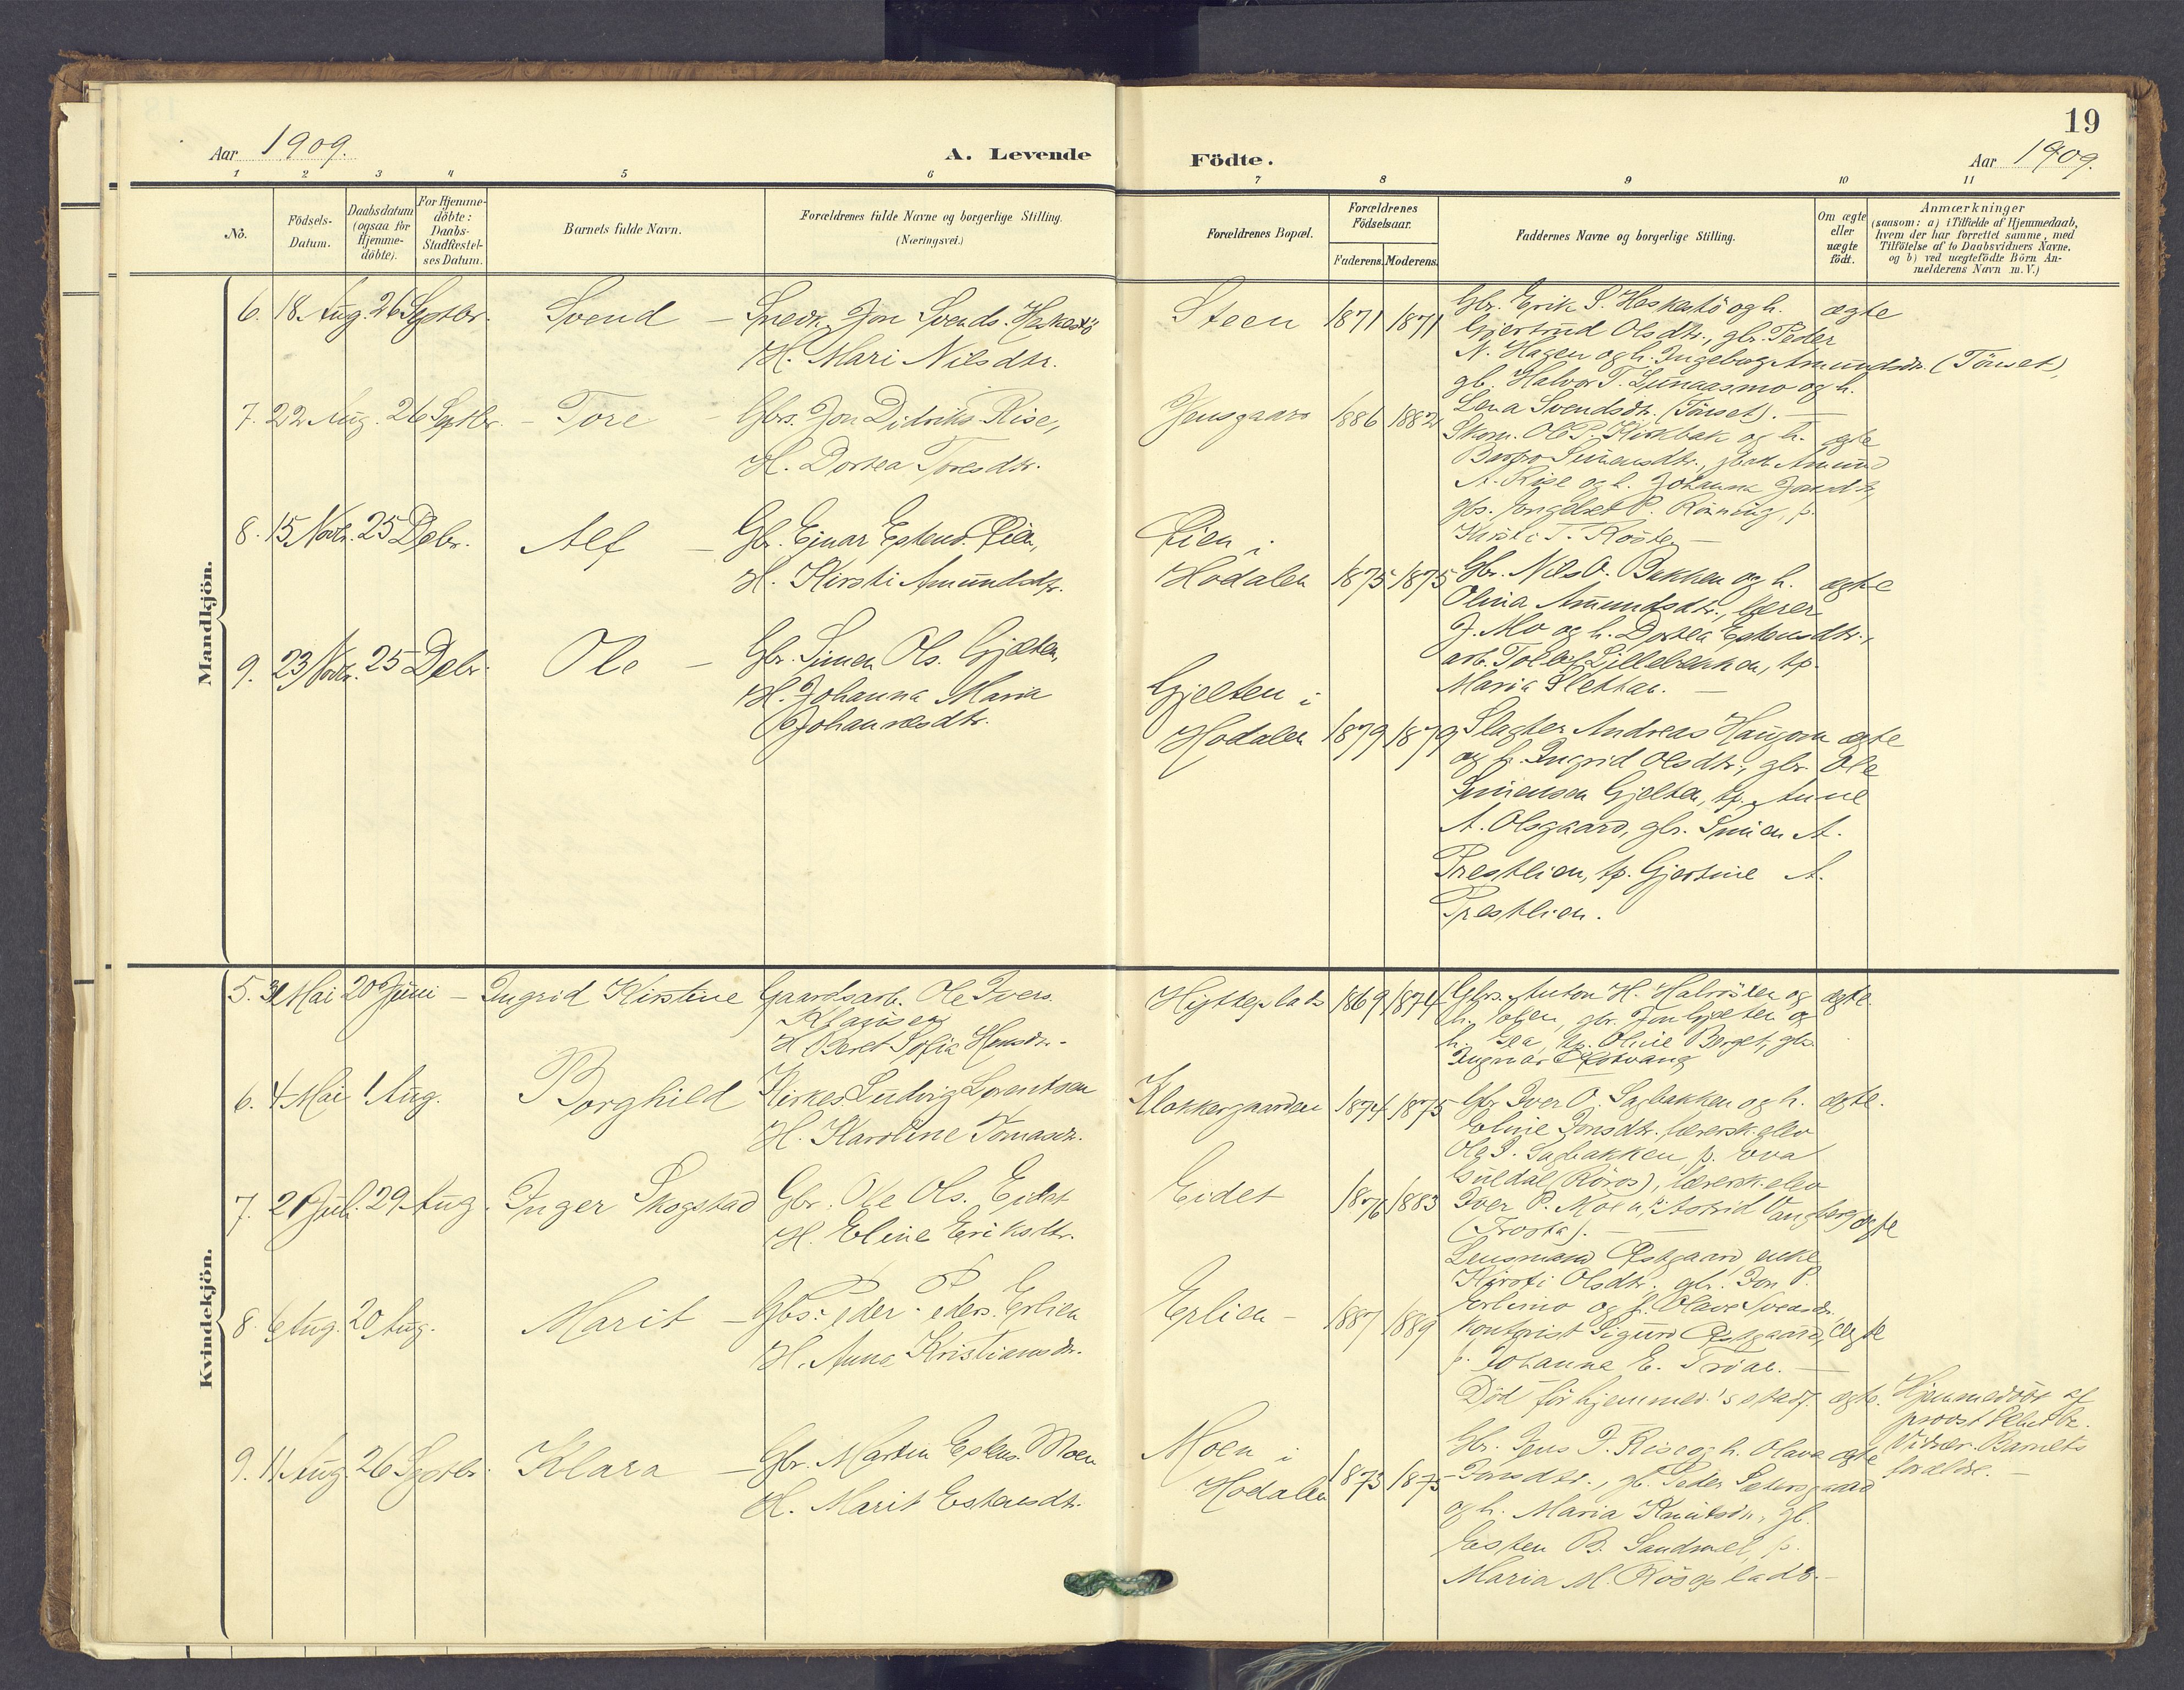 19
Aar 1909.
A. Levende
Födte.
Aar 1909.
1 2 3 4 5 6 7 8 9 10 11
No.
Födsels-
Datum.
Daabsdatum
(ogsaa for
Hjemme-
döbte).
For Hjemme-
döbte:
Daabs-
Stadfæstel-
ses Datum.
Barnets fulde Navn.
Forældrenes fulde Navne og borgerlige Stilling.
(Næringsvei.)
Forældrenes Bopæl.
Forældrenes
Födselsaar.
Faderens. Moderens.
Faddernes Navne og borgerlige Stilling.
Om ægte
eller
uægte
födt.
Anmærkninger
(saasom: a) i Tilfælde af Hjemmedaab,
hvem der har forrettet samme, med
Tilföielse af to Daabsvidners Navne,
og b) ved uægtefödte Börn An-
melderens Navn m. V.)
Mandkjön.
6. 18 Aug. 26 Septbr. Svend – Snedk. Jon Svends. Heskestö
H. Mari Nilsdtr.
Steen 1871 1871
Gbr. Erik S. Heskestö og h.
Gjertrud Olsdtr., gbr. Peder
N. Hagen og h. Ingeborg Amundsdr. (Tönset),
gb. Halvor T. Lunaasmo og h.
Lena Svendsdtr. (Tönset). –
ægte
7. 22 Aug. 26 Septbr. – Tore – Gbrs. Jon Didriks. Rise,
H. Dortea Toresdtr.
Jensgaard 1886 1882
Skom. Ole P. Kirkbak og h.
Barbro Simensdtr., Amund
A. Rise og h. Johanna Jonsdtr,
gbs. Ingebret P. Rönning, p.
Kirsti T. –
ægte
8. 15 Novbr. 25 Debr. Alf – Gbr. Ejnar Estens. Lien,
H. Kirsti Amundsdtr.
Lien i
Hodalen 1875 1875
Gbr. Nils O. Bakken og h.
Olina Amundsdtr., lærer
J. Mo og h. Dortea Estensdtr.,
arb. Tollef Lillebakken, tp.
Maria Sletten. –
ægte
9. 23 Novbr. 25 Debr. Ole – Gbr. Simen Ols. Gjelten,
H. Johanna Maria
Johannesdtr.
Gjelten i
Hodalen 1879 1879
Slagter Andreas Haugom
og h. Ingrid Olsdtr., gbr. Ole
Simensen Gjelten, tp. Anne
A. Olsgaard, gbr. Simen A.
Trestlien, tp. Gjertine A.
Trestlien.
ægte
Kvindekjön.
5. 31 Mai 20 Juni – Ingrid Kirstine Gaardsarb. Ole Ivers.
Klausen
H. Beret Sofia Hansdr. –
Hytteplads 1869 1874
Gbrs. Anton H. Halvösten og
h. Elen, gbr. Jon Gjelten og
h. Lea, tp. Oline Berget, gbs.
Ingmar
ægte.
6. 4 Mai 1 Aug. Borghild Kirkes. Ludvig Lorentsen
H. Karoline Tomasdr.
Klokkergaarden 1874 1875
Gbr. Iver O. Sagbakken og h.
Eline Jonsdtr. lærersk.elev
Ole I. Sagbakken, p. Eva
Guldal (Röros), lærersk.elev
Iver P. Moen, p. Astrid Vangberg
(Frosta). –
ægte.
7. 21 Juli 29 Aug. Inger Skogstad Gbr. Ole Ols. Eidet
H. Eline Eriksdtr.
Eidet 1876 1883
Lensmand Östgaard, enke
Kirsti Olsdtr., gb. Jon P.
Erlimo og h. Olava Svensdr.
kontorist Sigurd Östgaard,
p. Johanna E. Tröan. –
ægte
8. 6 Aug. 20 Aug. Marit – Gbs. Peder Peders. Erlien
H. Anna Kristiansdr.
Erlien – 1887 1889
Död för hjemmed.'s stadf.
ægte.
Hjemmedöbt af
provst
Vidner: Barnets
forældre. –
9. 11 Aug. 26 Septbr. Klara – Gbr. Martin Estens. Moen
H. Marit Estensdtr.
Moen i
Hodalen 1873 1875
Gbr. Jens J. Rise og h. Olava
Jonsdtr., gb. Peder
og h. Maria Knutsdr., gb.
Esten B. Sandmæl, p.
Maria M. –
ægte